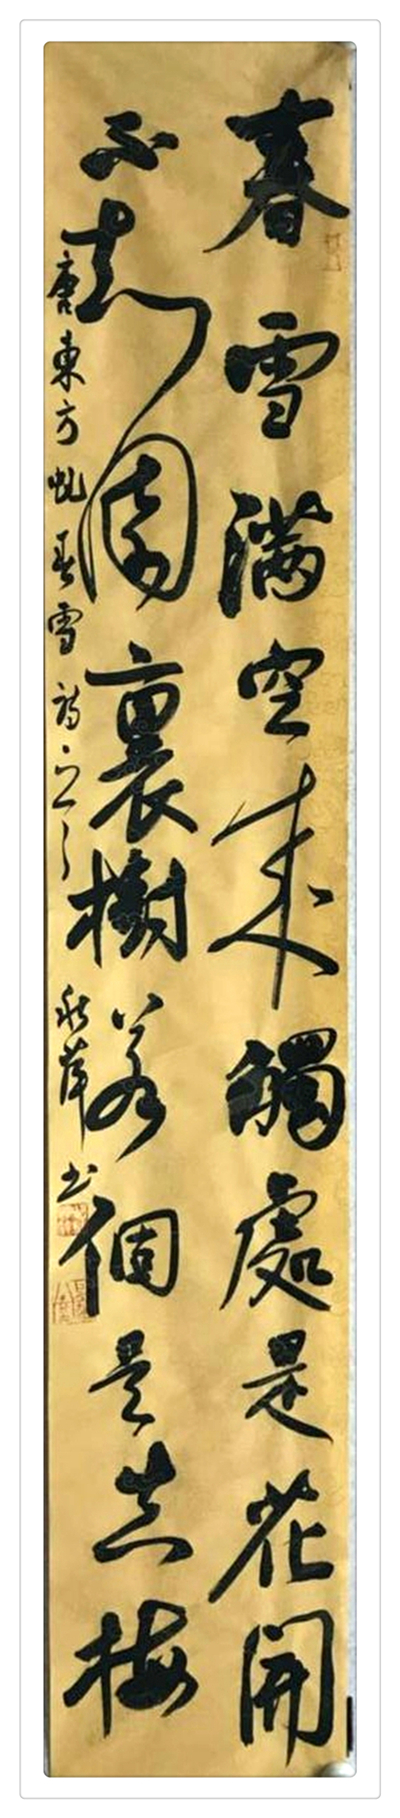 春雪满空来觸處是花開
不知園裏樹若個是真梅
唐東方虬春雪詩一首
秋萍书